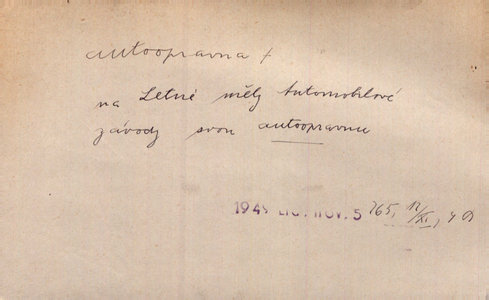 autoopravna +
na Letné měly Automobilové
závody svou autoopravnu
1949 LID. NOV. 5 265, 12/XI, 4 D